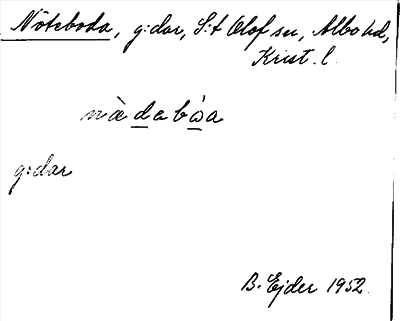 Nöteboda, g:dar, S:t Olof sn, Albo hd,
Krist. l.
nè̀dabòa
g:dar
B. Ejder 1952.